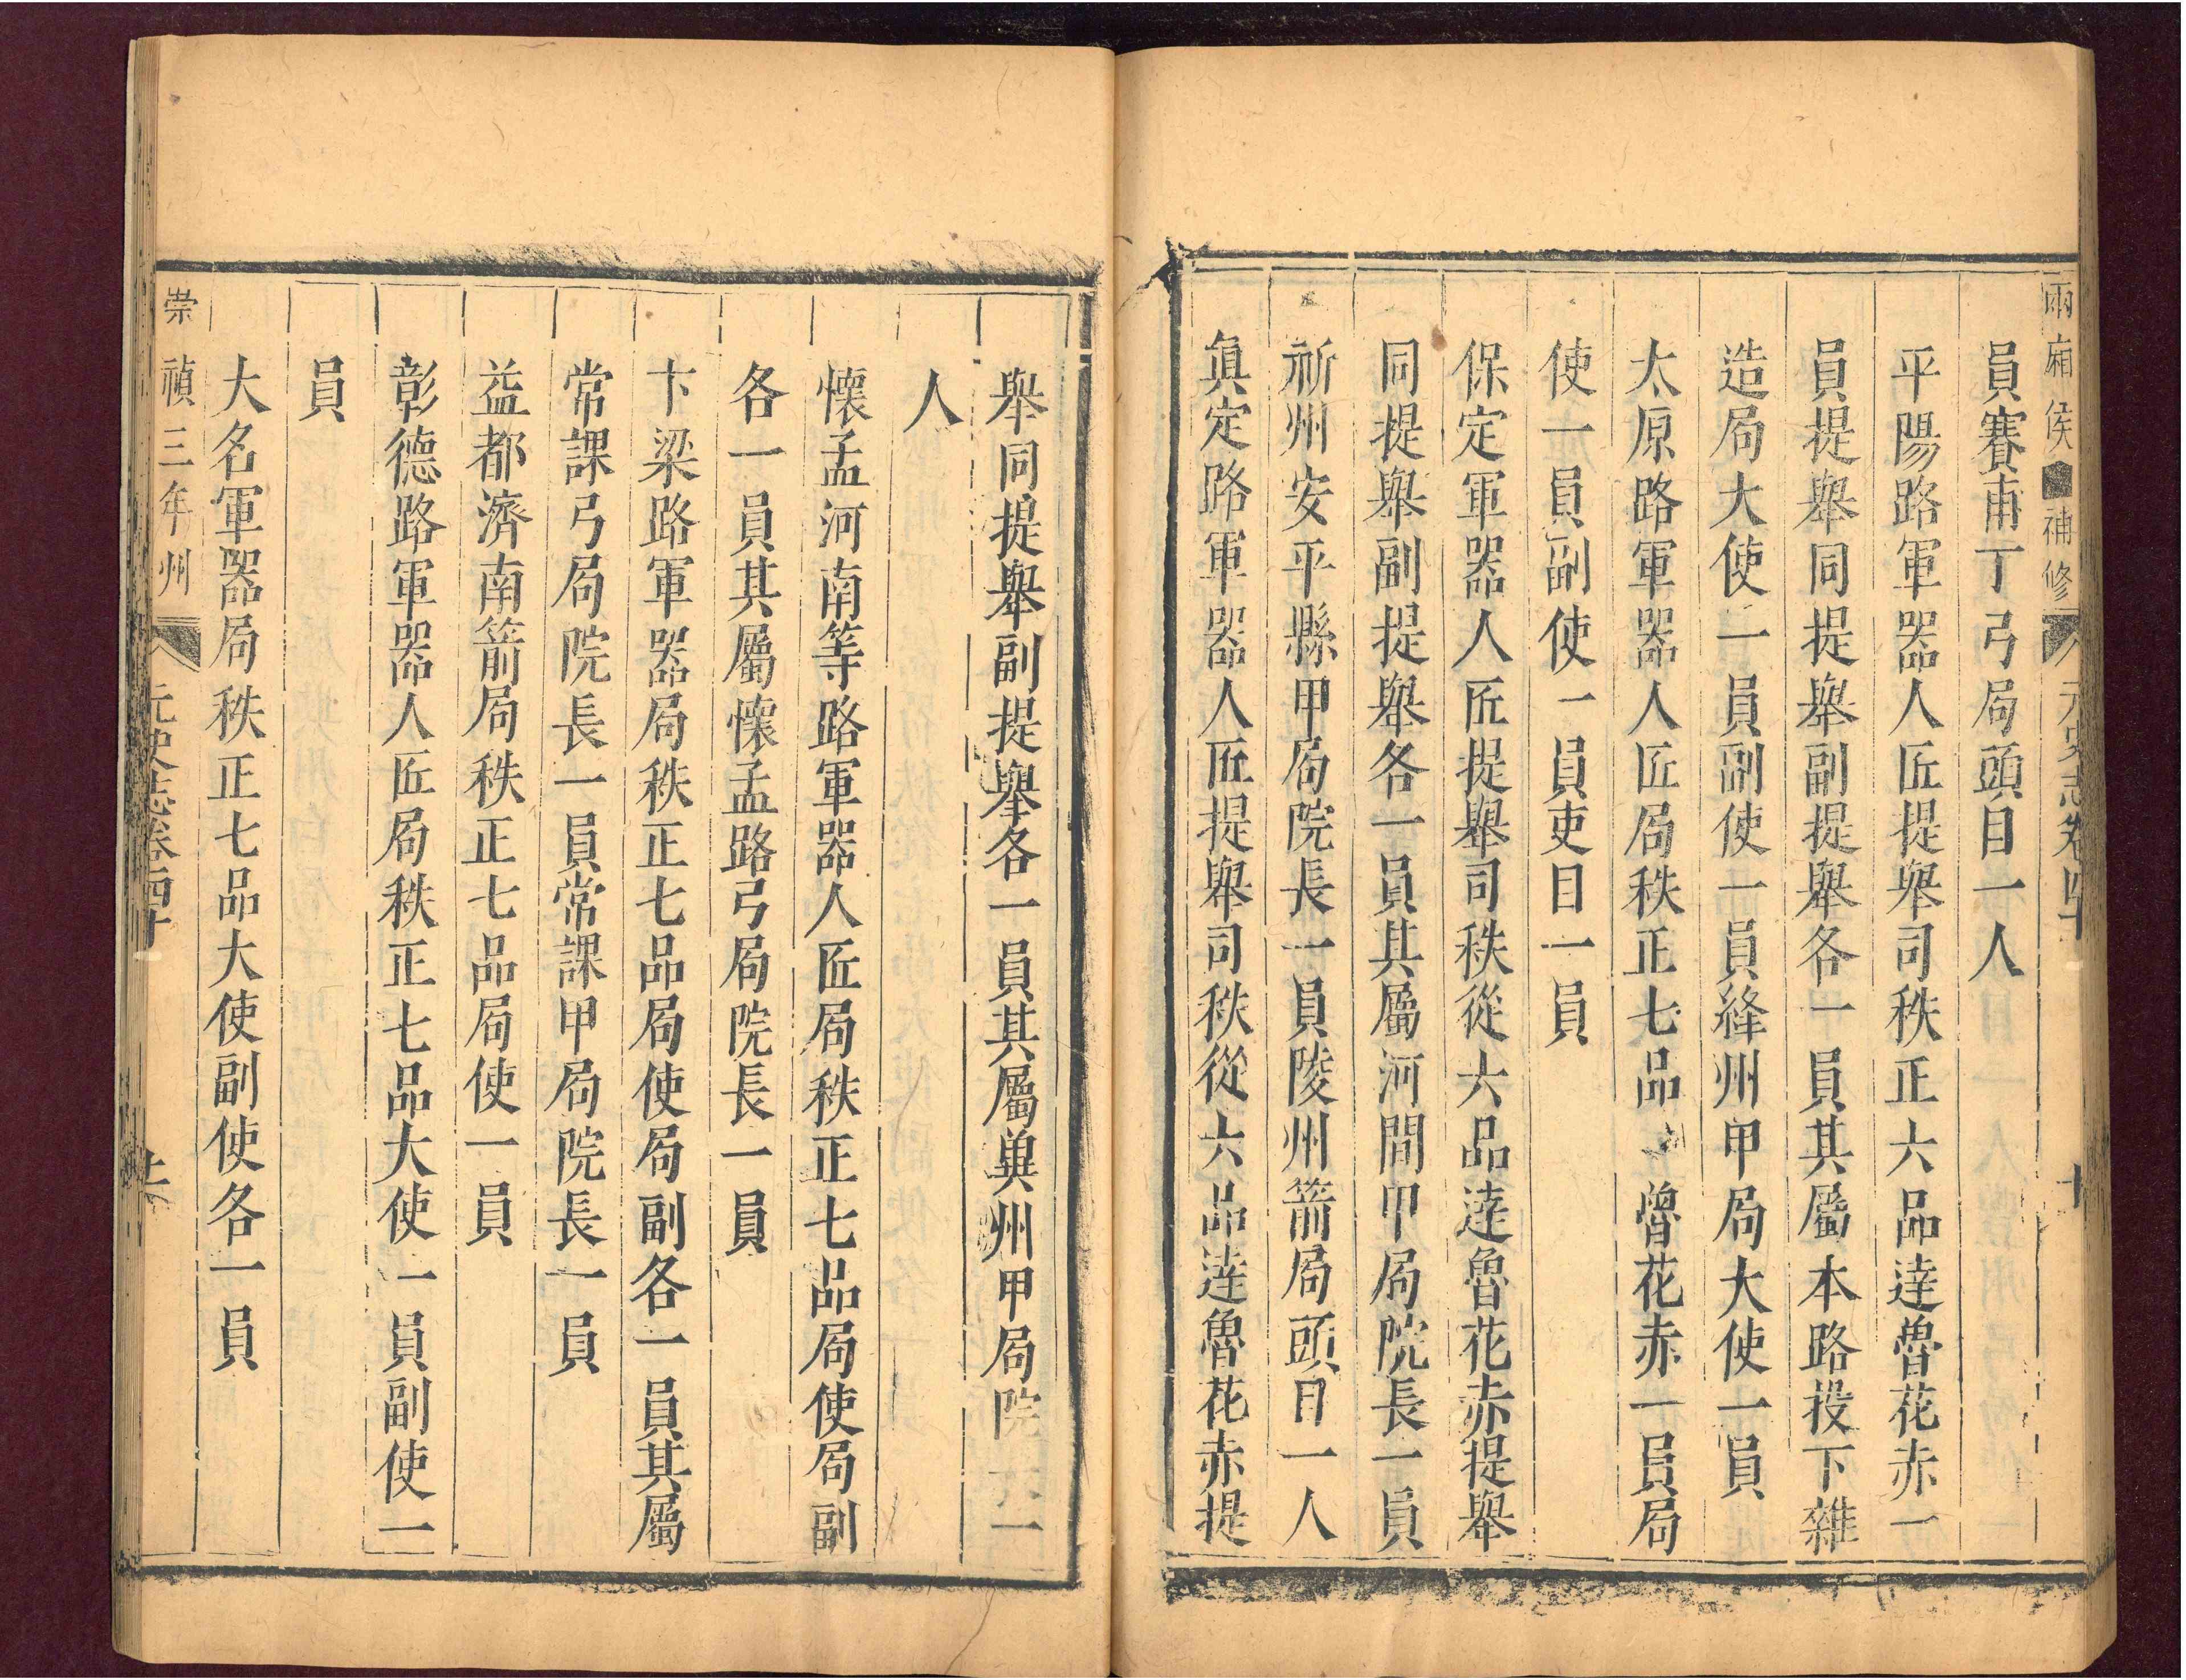 兩廂侯 補修 元史志卷四十 十
員賽甫丁弓局頭目一人
平陽路軍器人匠提舉司秩正六品達魯花赤一
員提舉同提舉副提舉各一員其屬本路投下雜
造局大使一員副使一員絳州甲局大使一員
太原路軍器人匠局秩正七品 魯花赤一員局
使一員副使一員吏目一員
保定軍器人匠提舉司秩從六品達魯花赤提舉
同提舉副提舉各一員其屬河間甲局院長一員
祈州安平縣甲局院長一員陵州箭局頭目一人
眞定路軍器人匠提舉司秩從六品達魯花赤提
舉同提舉副提舉各一員其屬兾州甲局院 一
人
懷孟河南等路軍器人匠局秩正七品局使局副
各一員其屬懷孟路弓局院長一員
卞梁路軍器局秩正七品局使局副各一員其屬
常課弓局院長一員常課甲局院長一員
益都濟南箭局秩正七品局使一員
彰德路軍器人匠局秩正七品大使一員副使一
員
大名軍器局秩正七品大使副使各一員
崇禎三年州 元史志卷四十